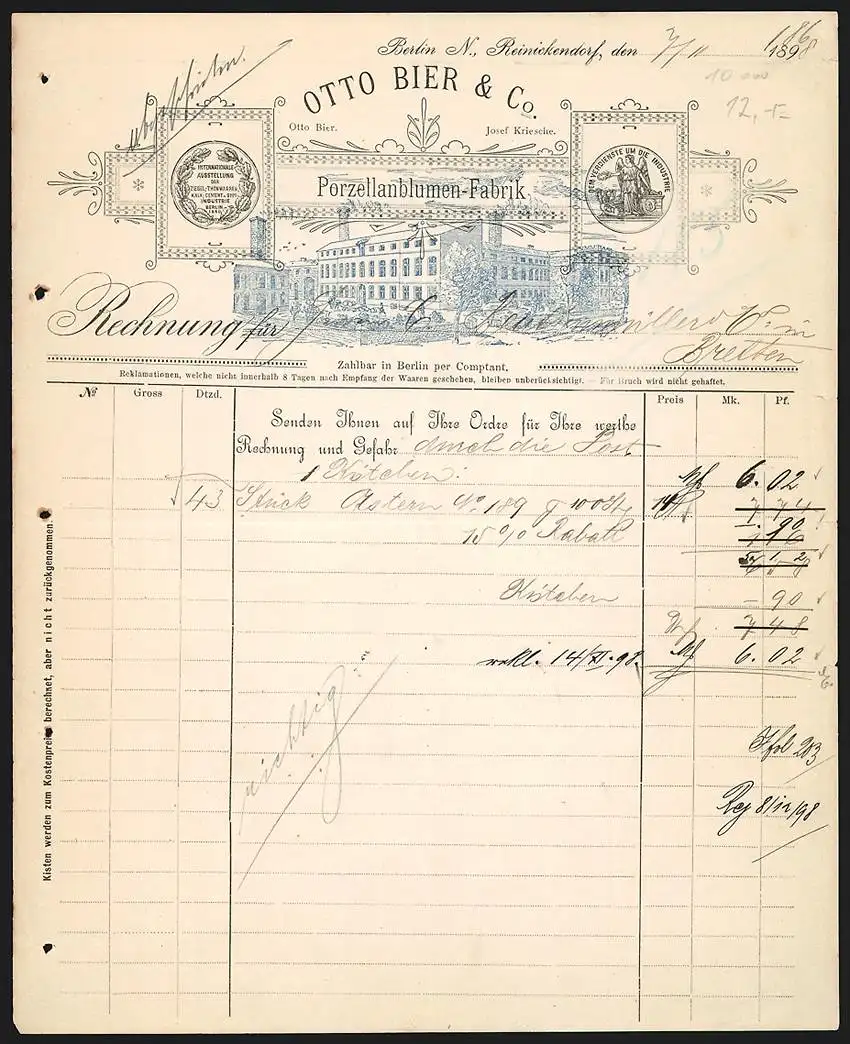 Berlin N., Reinickendorf, den 7/11 1898
186
abgeschrieben.
10 000
12,-
OTTO BIER & Co.
Otto Bier. Josef Kriesche.
INTERNATIONALE
AUSSTELLUNG
DER
INDUSTRIE
BERLIN
DEM VERDIENSTE UM DIE INDUSTRIE
Porzellanblumen-Fabrik
Rechnung für
Bretten
Zahlbar in Berlin per Comptant.
Reklamationen, welche nicht innerhalb 8 Tagen nach Empfang der Waaren geschehen, bleiben unberücksichtigt. — Für Bruch wird nicht gehaftet.
No Gross Dtzd. Preis Mk. Pf.
Senden Ihnen auf Ihre Ordre für Ihre werthe
Rechnung und Gefahr durch die Post
1 Kistchen: M 6. 02
43 Stück Astern No. 189 14 7 74
1. 90
15 % Rabatt 1 16
Kistchen - 90
7 48
rekl. 14/XI. 98. M 6. 02
richtig
203
Reg 8/12/98
Kisten werden zum Kostenpreis berechnet, aber nicht zurückgenommen.